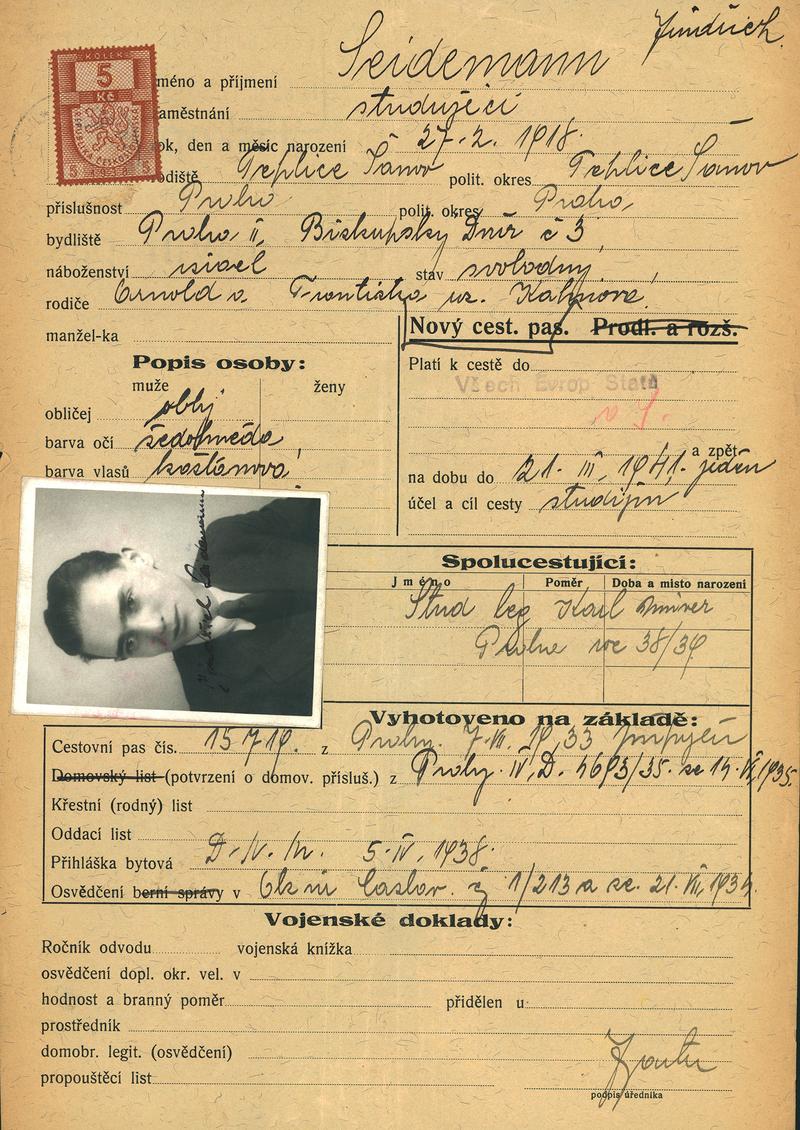 Jindřich
KOLEK
5
Kč
méno a příjmení Seidemann
aměstnání studující
ok, den a měsíc narození 27. 2. 1918.
odiště Teplice Šanov polit. okres Teplice Šanov
příslušnost Praha polit. okres Praha
bydliště Praha II, Biskupský Dvůr č 3,
náboženství israel stav svobodný,
rodiče Arnold a Františka roz. Kahnova
manžel-ka
Nový cest. pas. Prodl. a rozš.
Popis osoby:
muže ženy
Platí k cestě do
Všech Evrop Států
obličej oblý
barva očí šedohnědá,
barva vlasů kaštanová,
a zpět
na dobu do 21. III. 1941. jeden
účel a cíl cesty studijní
Spolucestující:
Jméno Poměr Doba a místo narození
Stud leg Karl Univer
Prahe roc 38/39
Vyhotoveno na základě:
Cestovní pas čís. 15719. z Prahy. 7. VII. 1933
Domovský list (potvrzení o domov. přísluš.) z Prahy. IV. D. 4693/35. ze 14. VI. 1935.
Křestní (rodný) list
Oddací list
Přihláška bytová D. N. M. 5. IV. 1938.
Osvědčení berní správy v Caslav. čj 1/213 a ze. 21. VII. 1934.
Vojenské doklady:
Ročník odvodu vojenská knížka
osvědčení dopl. okr. vel. v
hodnost a branný poměr přidělen u
prostředník
domobr. legit. (osvědčení)
propouštěcí list
podpis úředníka